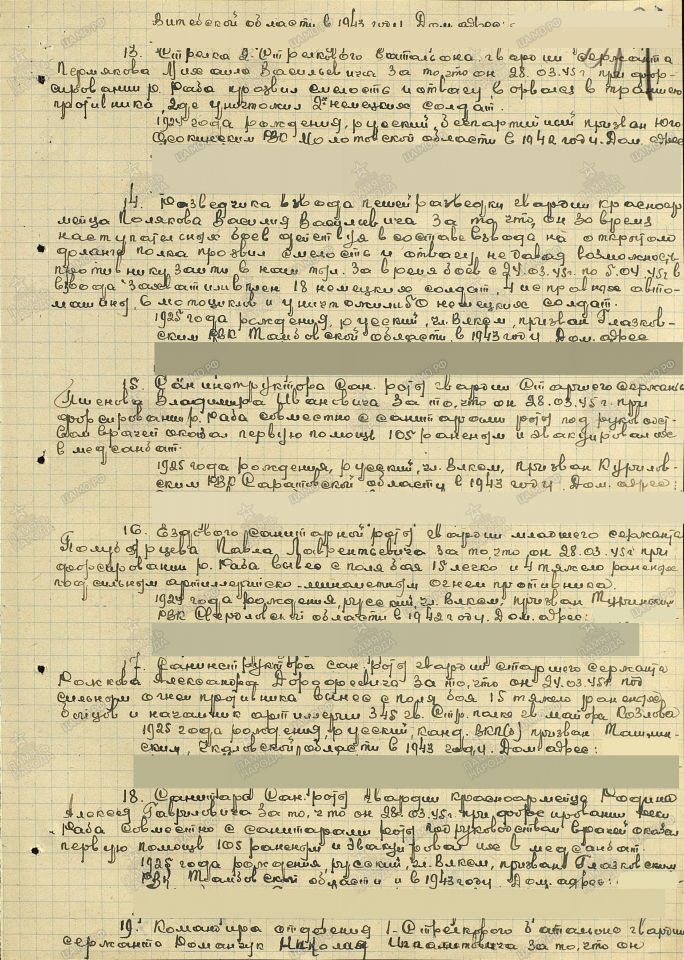 Витебской области в 1943 году Дом. адрес:
13. Стрелка 2 Стрелкового батальона гвардии сержанта
Пермякова Михаила Васильевича за то, что он 28.03.45г. при фор-
сировании р. Раба проявил смелость и отвагу ворвался в траншею
противника, где уничтожил 2х немецких солдат.
1924 года рождения, русский, беспартийный призван Юго-
Осокинским РВК Молотовской области в 1942 году. Дом. адрес
14. Разведчика взвода пешей разведки гвардии красноар-
мейца Полякова Василия Васильевича за то, что он во время
наступательных боев действуя в составе взвода на открытом
фланге полка проявил смелость и отвагу не давая возможность
противнику зайти в наш тыл. За время боев с 24.03.45г. по 5.04.45г. в
взвода захватили в плен 18 немецких солдат, 4 исправных авто-
машины, 6 мотоциклов и уничтожили 50 немецких солдат.
1925 года рождения, русский, чл. Влксм, призван Глазков-
ским РВК Тамбовской области в 1943 году Дом. адрес
15. Санинструктора Сан. роты гвардии Старшего Сержанта
Владимира Ивановича за то, что он 28.03.45г. при
форсировании р. Раба совместно с санитарами роты под руководст-
вом врачей оказал первую помощь 105 раненым и эвакуировал их
в медсанбат.
1925 года рождения, русский, чл. Влксм, призван Куриловским
РВК Саратовской области в 1943 году. Дом. адрес:
16. Ездового санитарной роты гвардии младшего сержанта
Павла Лаврентьевича за то, что он 28.03.45г. при
форсировании р. Раба вывез с поля боя 15 легко и 4 тяжело раненых
под сильным артиллерийско-минометным огнем противника.
1924 года рождения, русский, чл. Влксм, призван Туринским
РВК Свердловской области в 1942 году. Дом. адрес:
17. Санинструктора сан. роты гвардии старшего сержанта
Рожкова Александра Дорофеевича за то, что он 24.03.45г. под
сильным огнем противника вынес с поля боя 15 тяжело раненых
бойцов и начальник артиллерии 345 гв. Стр. полка гв майора Козлова
1925 года рождения, русский, канд. ВКП(б) призван Ташлин-
ским, Чкаловской области в 1943 году. Дом. адрес:
18. Санитара Сан. роты гвардии красноармейца Родина
Алексея Гавриловича за то, что он 28.03.45г. при форсировании реки
Раба совместно с санитарами роты под руководством врачей оказал
первую помощь 105 раненым и эвакуировал их в медсанбат.
1925 года рождения, русский, чл. Влксм, призван Глазковским
РВК Тамбовской области в 1943 году. Дом. адрес:
19. Командира отделения 1-Стрелкового батальона гвардии
сержанта Романчук Николая Ипполитовича за то, что он